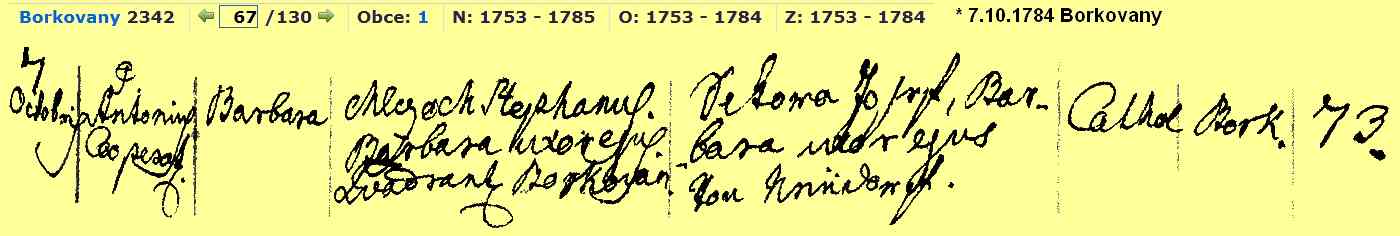 Borkovany 2342 67 /130 Obce: 1 N: 1753 - 1785 O: 1753 - 1784 Z: 1753 - 1784 * 7.10.1784 Borkovany
7
Octobris
P Antonius
Cooperat.
Barbara
Stephanus.
Barbara uxor ejus.
Quadrant Borkovan
Josepf, Bar-
bara uxor ejus
Von
Cathol
Bork.
73.